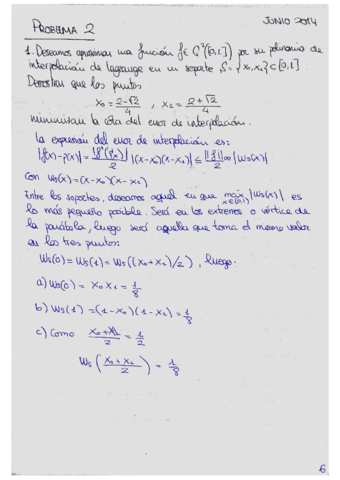 PROBLEMA 2
JUNIO 2014
1. Deseamos aproximar una función f∈ C²([0,1]) por su polinomio de
interpolación de lagrange en un soporte S = {x₀, x₁} ⊂ [0,1].
Demostrar que los puntos
x₀ = (2-√2)/4 , x₁ = (2+√2)/4
minimizan la cota del error de interpolación.
La expresión del error de interpolación es:
|f(x)-p(x)| = |f''(ξx)|/2 |(x-x₀)(x-x₁)| ≤ ||f''||∞/2 |Ws(x)|
Con Ws(x) = (x-x₀)(x-x₁)
Entre los soportes, deseamos aquel en que max x∈(0,1) |Ws(x)| es
lo más pequeño posible. Será en los extremos o vértice de
la parábola, luego será aquella que toma el mismo valor
en los tres puntos:
Ws(0) = Ws(1) = Ws((x₀+x₁)/2) , luego.
a) Ws(0) = x₀ x₁ = 1/8
b) Ws(1) = (1-x₀)(1-x₁) = 1/8
c) Como (x₀+x₁)/2 = 1/2
Ws((x₀+x₁)/2) = 1/8
6